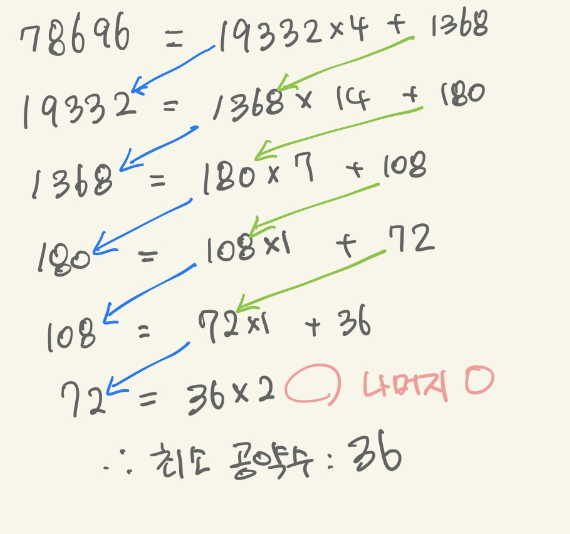 78696 = 19332×4 + 1368
19332 = 1368× 14 + 180
1368 = 180×7 + 108
180 = 108×1 + 72
108 = 72×1 + 36
72 = 36×2 나머지 0
∴ 최소 공약수 : 36